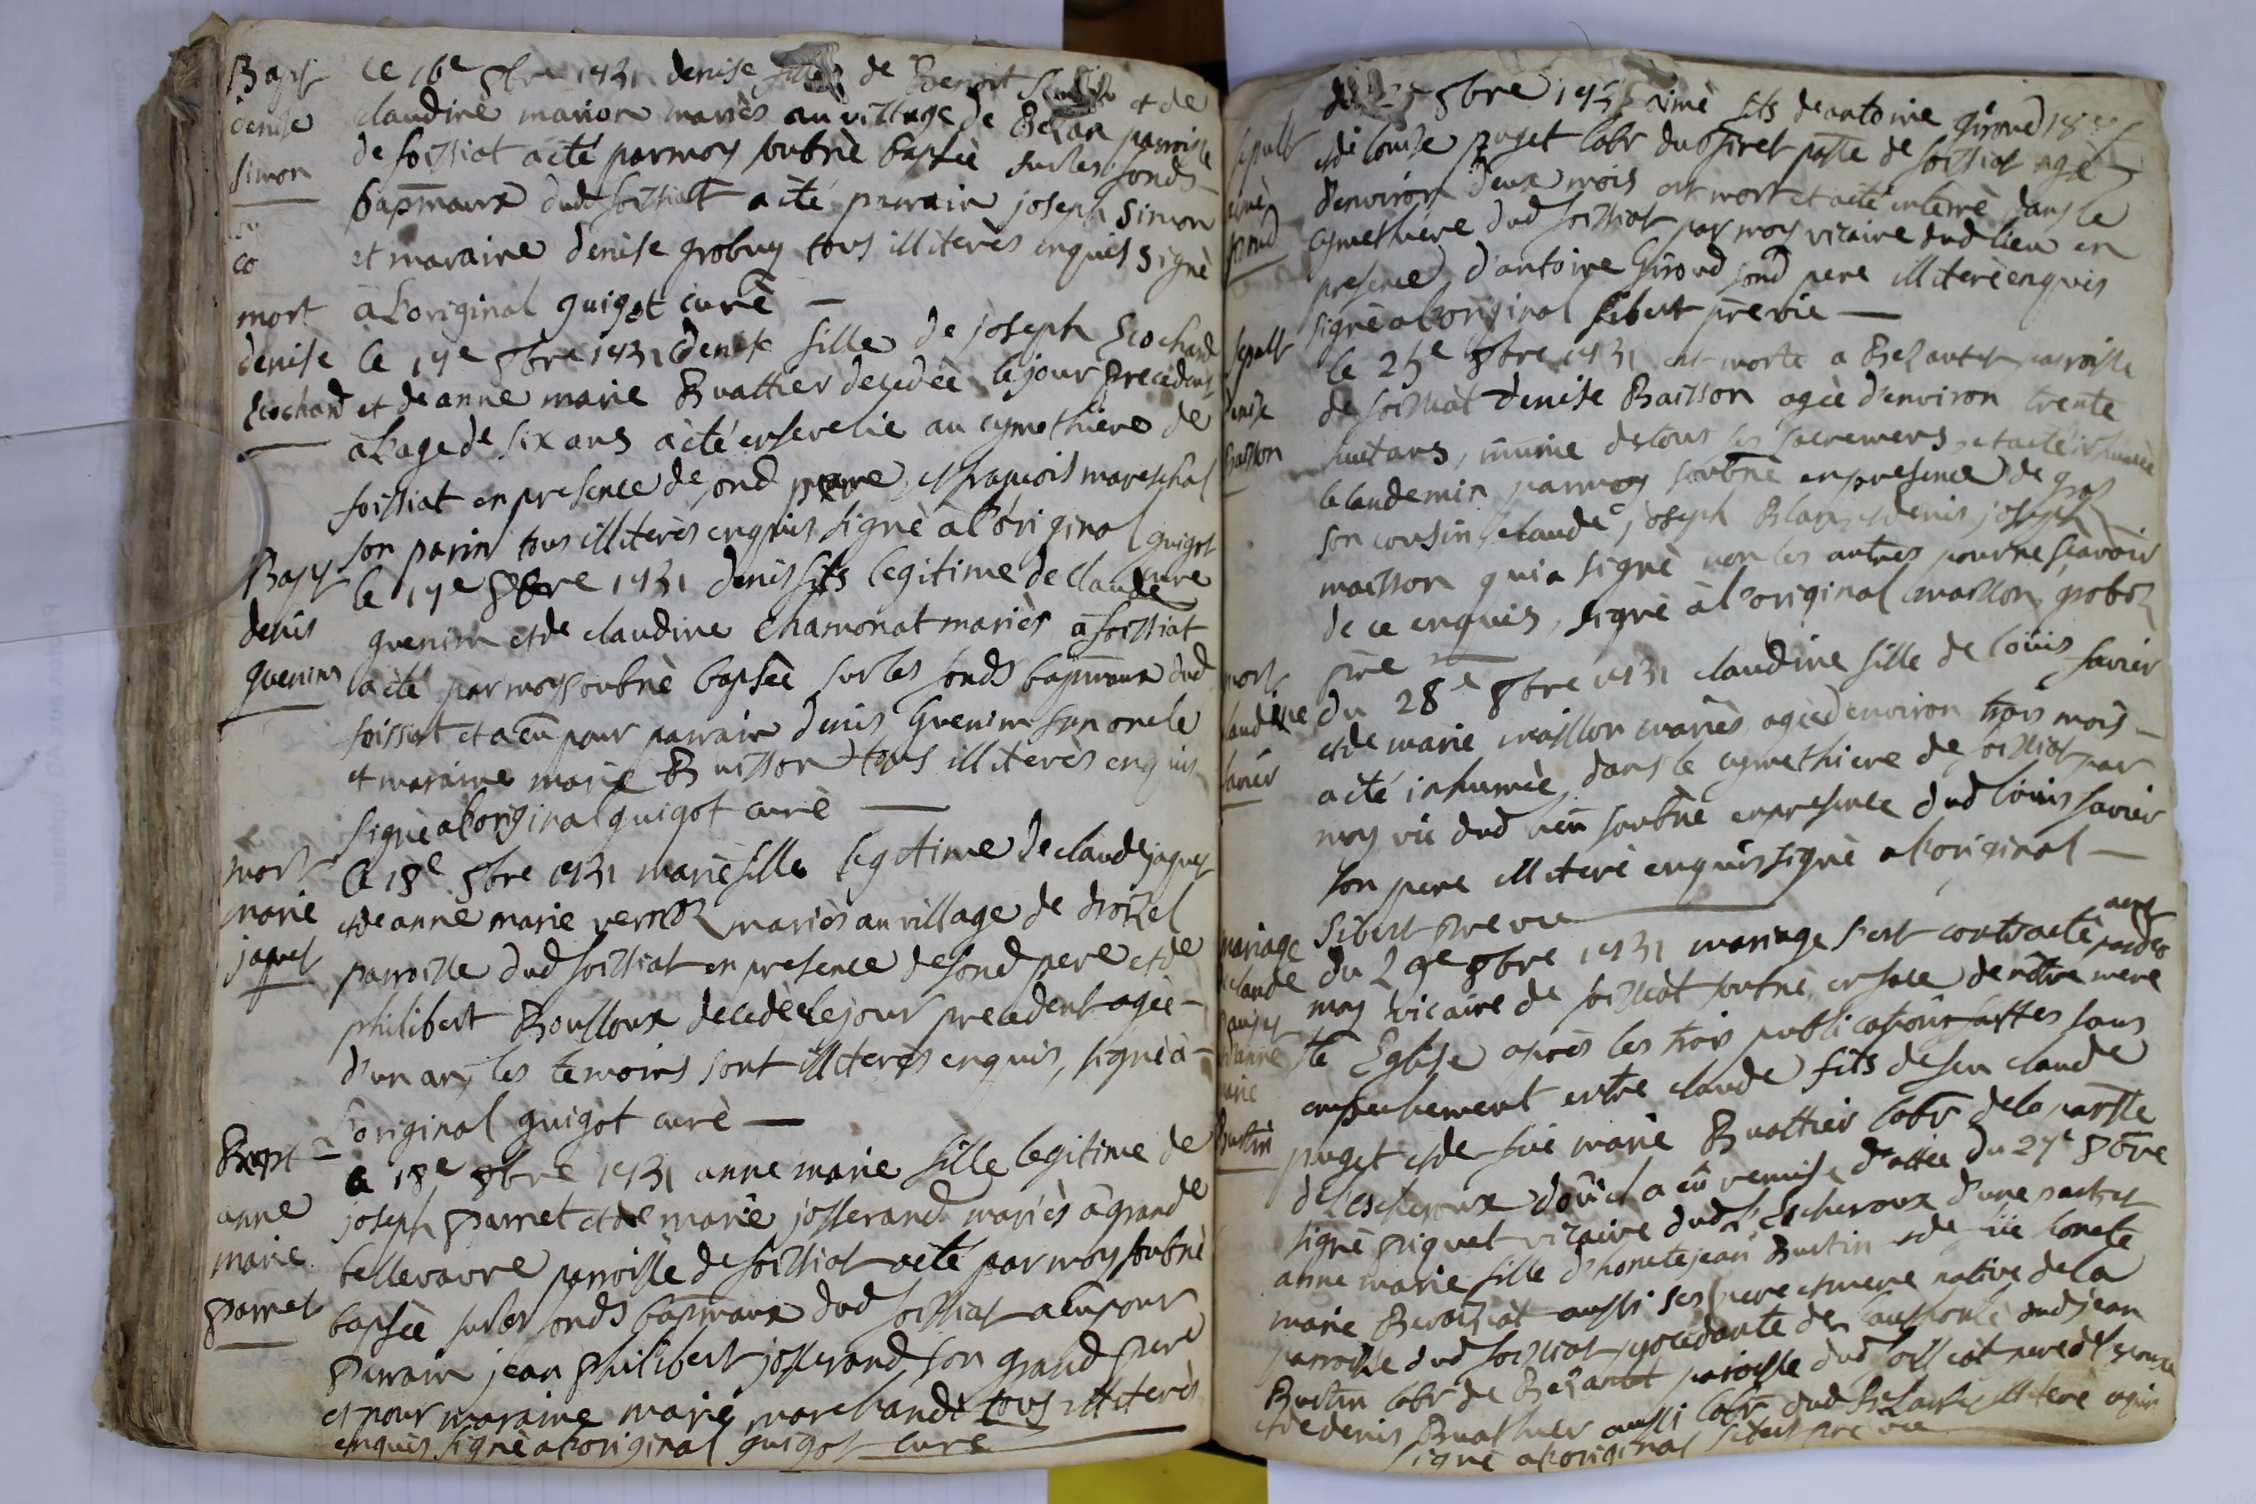 Bapt
denise
simon
co
le 16e 8bre 1731 denise fille de Benoit & de
claudine marion mariès au village de Bezan parroisse
de foissiat a été par moy soubnè bapsée sur les fonds
bapmaux dud foissiat a été parrain joseph Simon
et maraine denise grobuy tous illiterès enquis signè
à l'original guigot curè —
mort
denise
Ecochard
le 17e 8bre 1731 denise fille de joseph Ecochard
et de anne marie Buattier decedèe le jour precedent
a l'age de six ans a été ensevelie au cymethiere de
foissiat en presence de sond pere, et francois mareschal
son parin tous illiterès enquis signè à l'original guigot
curè
Bapt
denis
guenin
le 17e 8bre 1731 denis fils legitime de claude
guenin et de claudine Chamonat mariès a foissiat
a été par moy soubnè bapsée sur les fonds bapmaux dud
foissiat et a eu pour parrain denis Guenin son oncle
et maraine marie Buisson tous illiterès enquis
signè a l'original guigot curè —
mort
marie
jaquet
le 18e 8bre 1731 marie fille legitime de claude jaquet
et de anne marie mariès au village de
parroisse dud foissiat en presence de sond pere et de
philibert Boulloux decedèe le jour precedent agèe —
d'un an, les temoins sont illiterès enquis, signè à —
l'original guigot curè —
Bapt
anne
marie
parret
le 18e 8bre 1731 anne marie fille legitime de
joseph parret et de marie josserand mariès à grande
bellevavre parroisse de foissiat a été par moy soubnè
bapsée sur les fonds bapmaux dud foissiat a eu pour
parrain jean philibert josserand son grand pere
et pour maraine marie marchande tous illiterès
enquis signè a l'original guigot curè
sepult
aimè
giroud
du 8bre 1731 aimè fils de antoine giroud
et de louise puget labr du passe de foissiat agè
d'environ deux mois est mort et a été enterrè dans le
cymethiere dud foissiat par moy vicaire dud lieu en
presence d'antoine Giroud sond pere illiterè enquis
signè a l'original sibert pre vic —
sepult
denise
Baisson
le 25e 8bre 1731 est morte a parroisse
de foissiat denise Baisson agèe d'environ trente
huit ans, munie de tous ses sacremens, et a été inhumèe
le landemin par moy soubnè en presence de
son cousin, claude joseph Blanc, et denis joseph
maisson qui a signè non les autres pour ne scavoir
de ce enquis, signè à l'original maisson,
pre
mort
claudine
savier
du 28e 8bre 1731 claudine fille de loüis savier
et de marie maisson mariès, agèe d'environ trois mois —
a été inhumèe, dans le cymethiere de foissiat par
moy vic dud lieu soubnè en presence dud loüis savier
son pere illiterè enquis signè a l'original —
sibert pre vic
mariage
de claude
puget
et anne
marie
Burtin
du 29e 8bre 1731 mariage s'est contractè par dev
moy vicaire de foissiat soubnè, en face de nôtre mere
ste Eglise après les trois publications faittes sans
empechement entre claude fils de feu claude
puget et de füe marie Buattier labr de la passe
de L'escheroux d'où il a eü remise d'attée du 27e 8bre
signè piquet vicaire dud L'Escheroux d'une part et
anne marie fille d'honete jean Burtin et de füe honete
marie aussi ses pere et mere native de la
parroisse dud foissiat procedante de l'authoritè dud jean
Burtin labr de parroisse dud foissiat pere de l'epouse
et de denis Buathier aussi labr dud illiterè
signè a l'original sibert pre vic